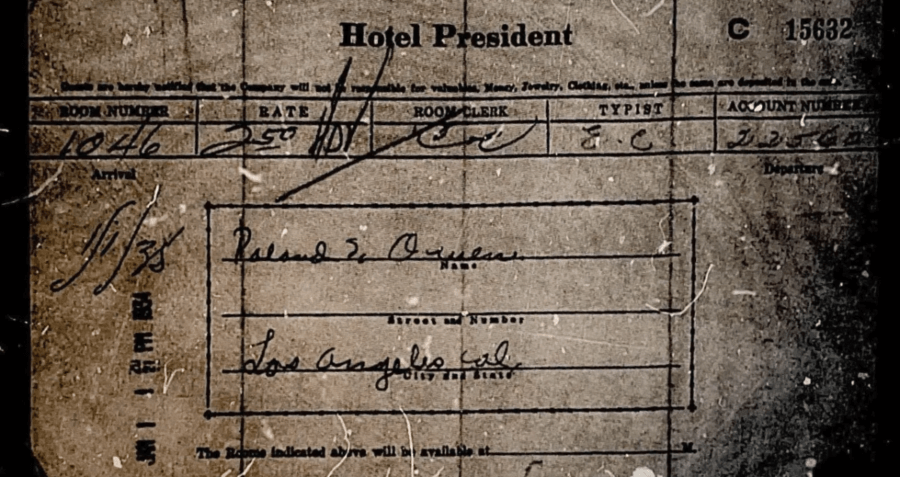 Hotel President
C 15632
Guests are hereby notified that the Company will not be responsible for valuables, Money, Jewelry, Clothing, etc., unless the same are deposited in the
ROOM NUMBER RATE ROOM CLERK TYPIST ACCOUNT NUMBER
1046 2 50 E.C
Arrival Departure
1/ /35
Roland T. Owen
Name
Street and Number
Los Angeles Cal
City and State
The Rooms indicated above will be available at M.